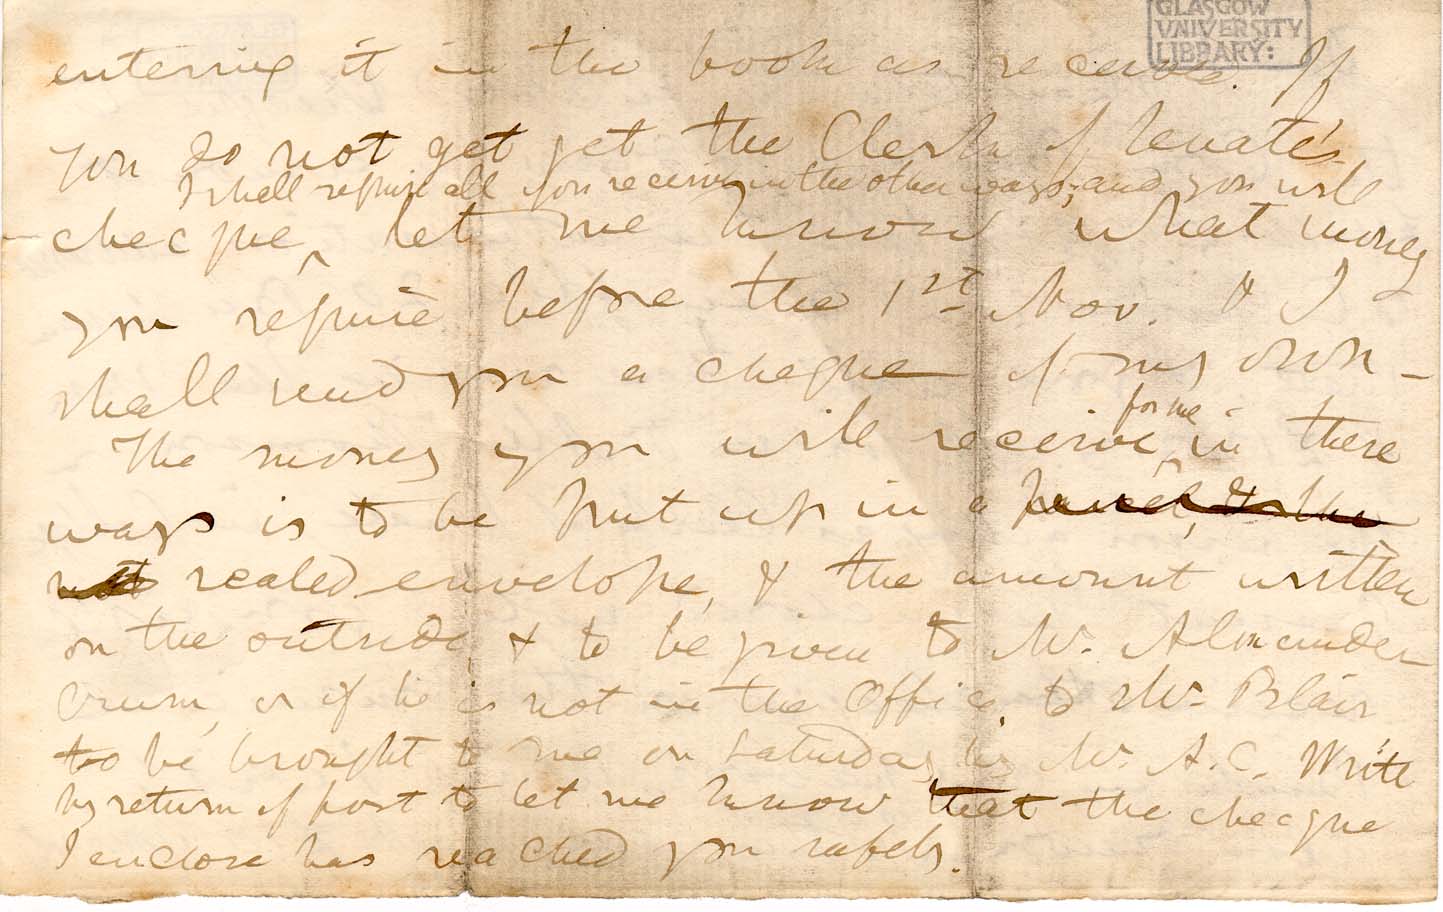 GLASGOW
UNIVERSITY
LIBRARY:
entering it in the book as received. If
you do not get yet the Clerk of Senate's
I shall require all you receive in the other ways; and you will
checque, let me know what money
you require before the 1st Nov. & I
shall send you a cheque of my own –
for me
The money you will receive in these
ways is to be put up in a
sealed envelope, & the amount written
on the outside, & to be given to Mr. Alexander
Crum, or if he is not in the Office, to Mr. Blair
to be brought to me on Saturday by Mr. A.C. Write
by return of post to let me know that the checque
I enclose has reached you safely.